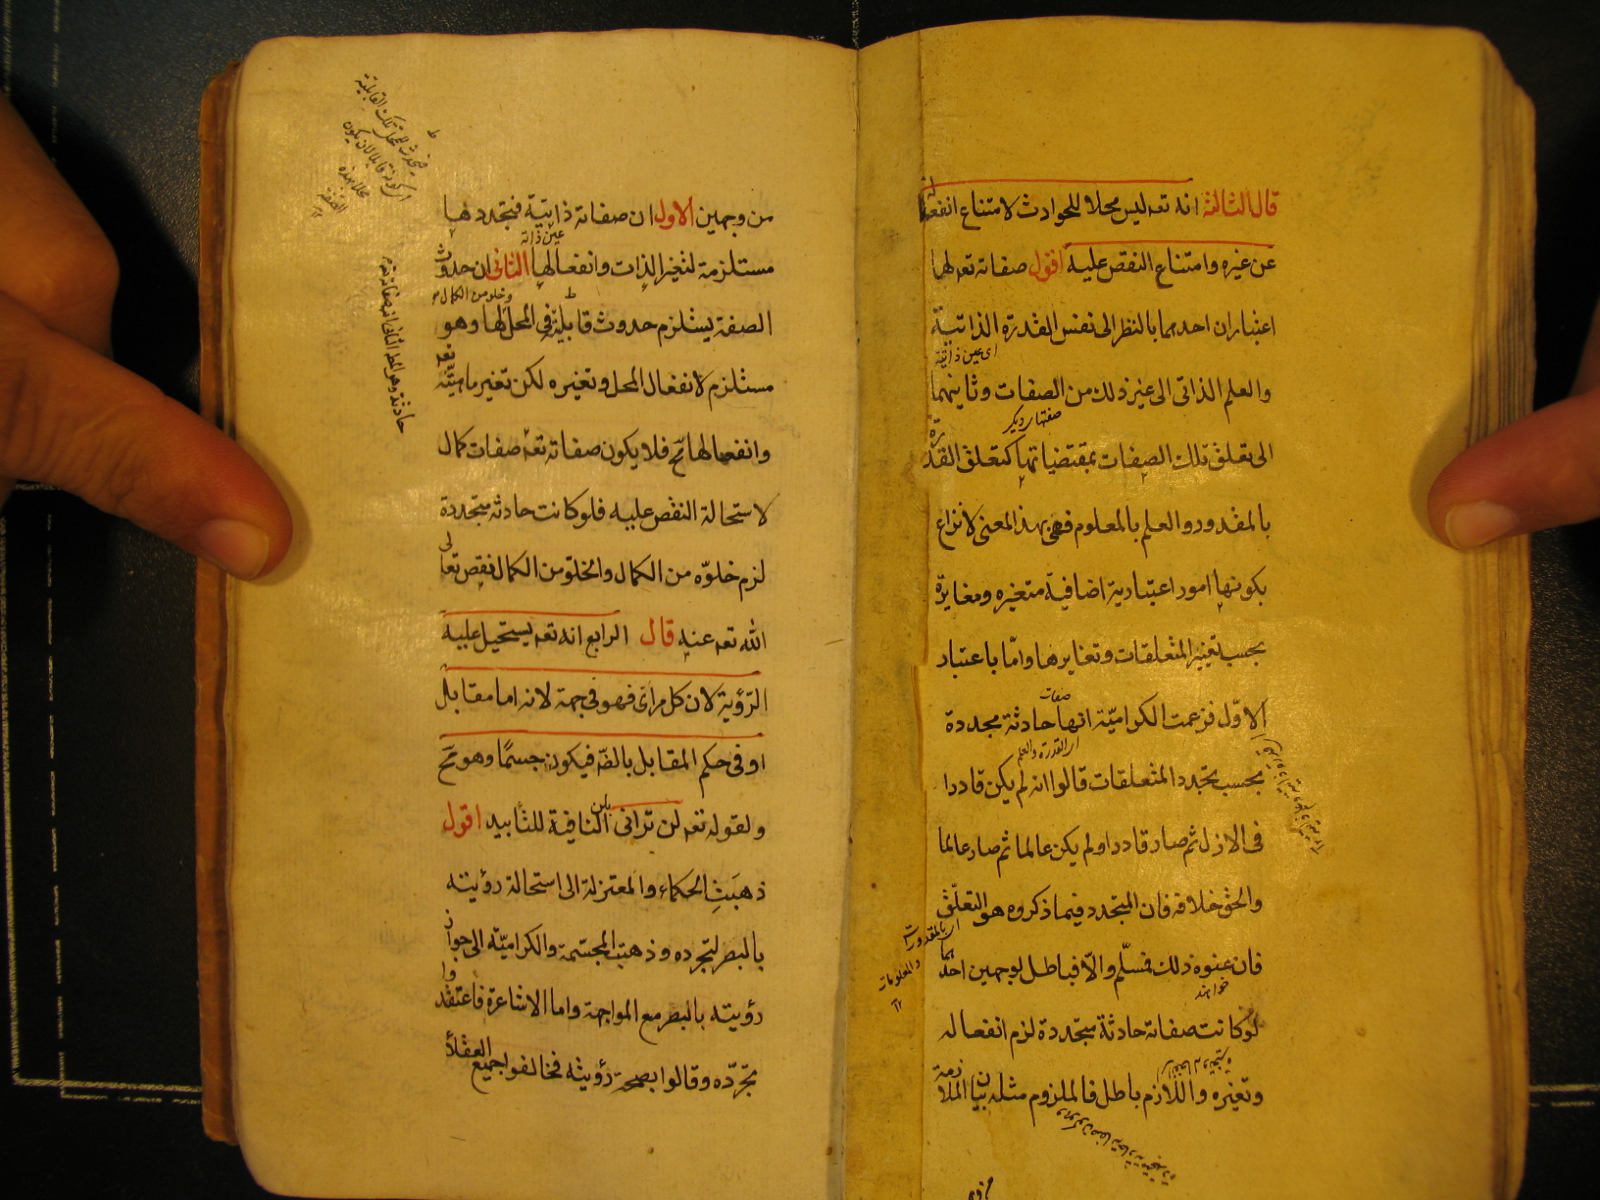 قال الثالثة انه تعه ليس محلا للحوادث لامتناع انفعاله
عن غيره وامتناع النقص عليه اقول صفاته تعه لها
اعتباران احدهما بالنظر الى نفس القدرة الذاتية
اى عين ذاتية
والعلم الذاتى الى غير ذلك من الصفات وثانيهما
صفتهاء ديكر
الى تعلق تلك الصفات بمقتضياتها كتعلق القدرة
بالمقدور والعلم بالمعلوم فهى بهذا المعنى لا نزاع
بكونها امورا اعتبارية اضافية متغيره ومغايرة
بحسب تغير المتعلقات وتغايرها واما باعتبار
صفات
الاول فزعمت الكرامية انها حادثة مجددة
اى القدرة والعلم
بحسب تجدد المتعلقات قالوا انه لم يكن قادرا
فى الازل ثم صار قادرا ولم يكن عالما ثم صار عالما
والحق خلافه فان المتجدد فيما ذكروه هو التعلق
اى بالمقدورات
والمعلومات
فان عنوه ذلك فمسلم والا فباطل لوجهين احدهما
خواهند
لو كانت صفاته حادثة متجددة لزم انفعاله
وتغيره واللازم باطل فالملزوم مثله بيان الملازمة
من وجهين الاول ان صفاته ذاتية فتجددها
عين ذاته
مستلزمة لتغير الذات وانفعالها الثانى ان حدوث
وخلو من الكمال
الصفة يستلزم حدوث قابلية فى المحل لها وهو
مستلزم لانفعال المحل وتغيره لكن تغير ماهيته تعه
وانفعالها مح فلا يكون صفاته تعه صفات كمال
لاستحالة النقص عليه فلو كانت حادثه متجددة
لزم خلوه من الكمال والخلو من الكمال نقص تعالى
الله تعه عنه قال الرابع انه تعه يستحيل عليه
الرؤية لان كل مرأى فهو فى جهة لانه اما مقابل
او فى حكم المقابل بالضه فيكون جسما وهو مح
ولقوله تعه لن ترانى بلن النافية للتأبيد اقول
ذهبت الحكماء والمعتزلة الى استحالة رؤيته
بالبصر لتجرده وذهبت المجسمة والكرامية الى جواز
رؤيته بالبصر مع المواجهة واما الاشاعرة فاعتقدوا
تجرده وقالوا بصحة رؤيته فخالفوا جميع العقلاء